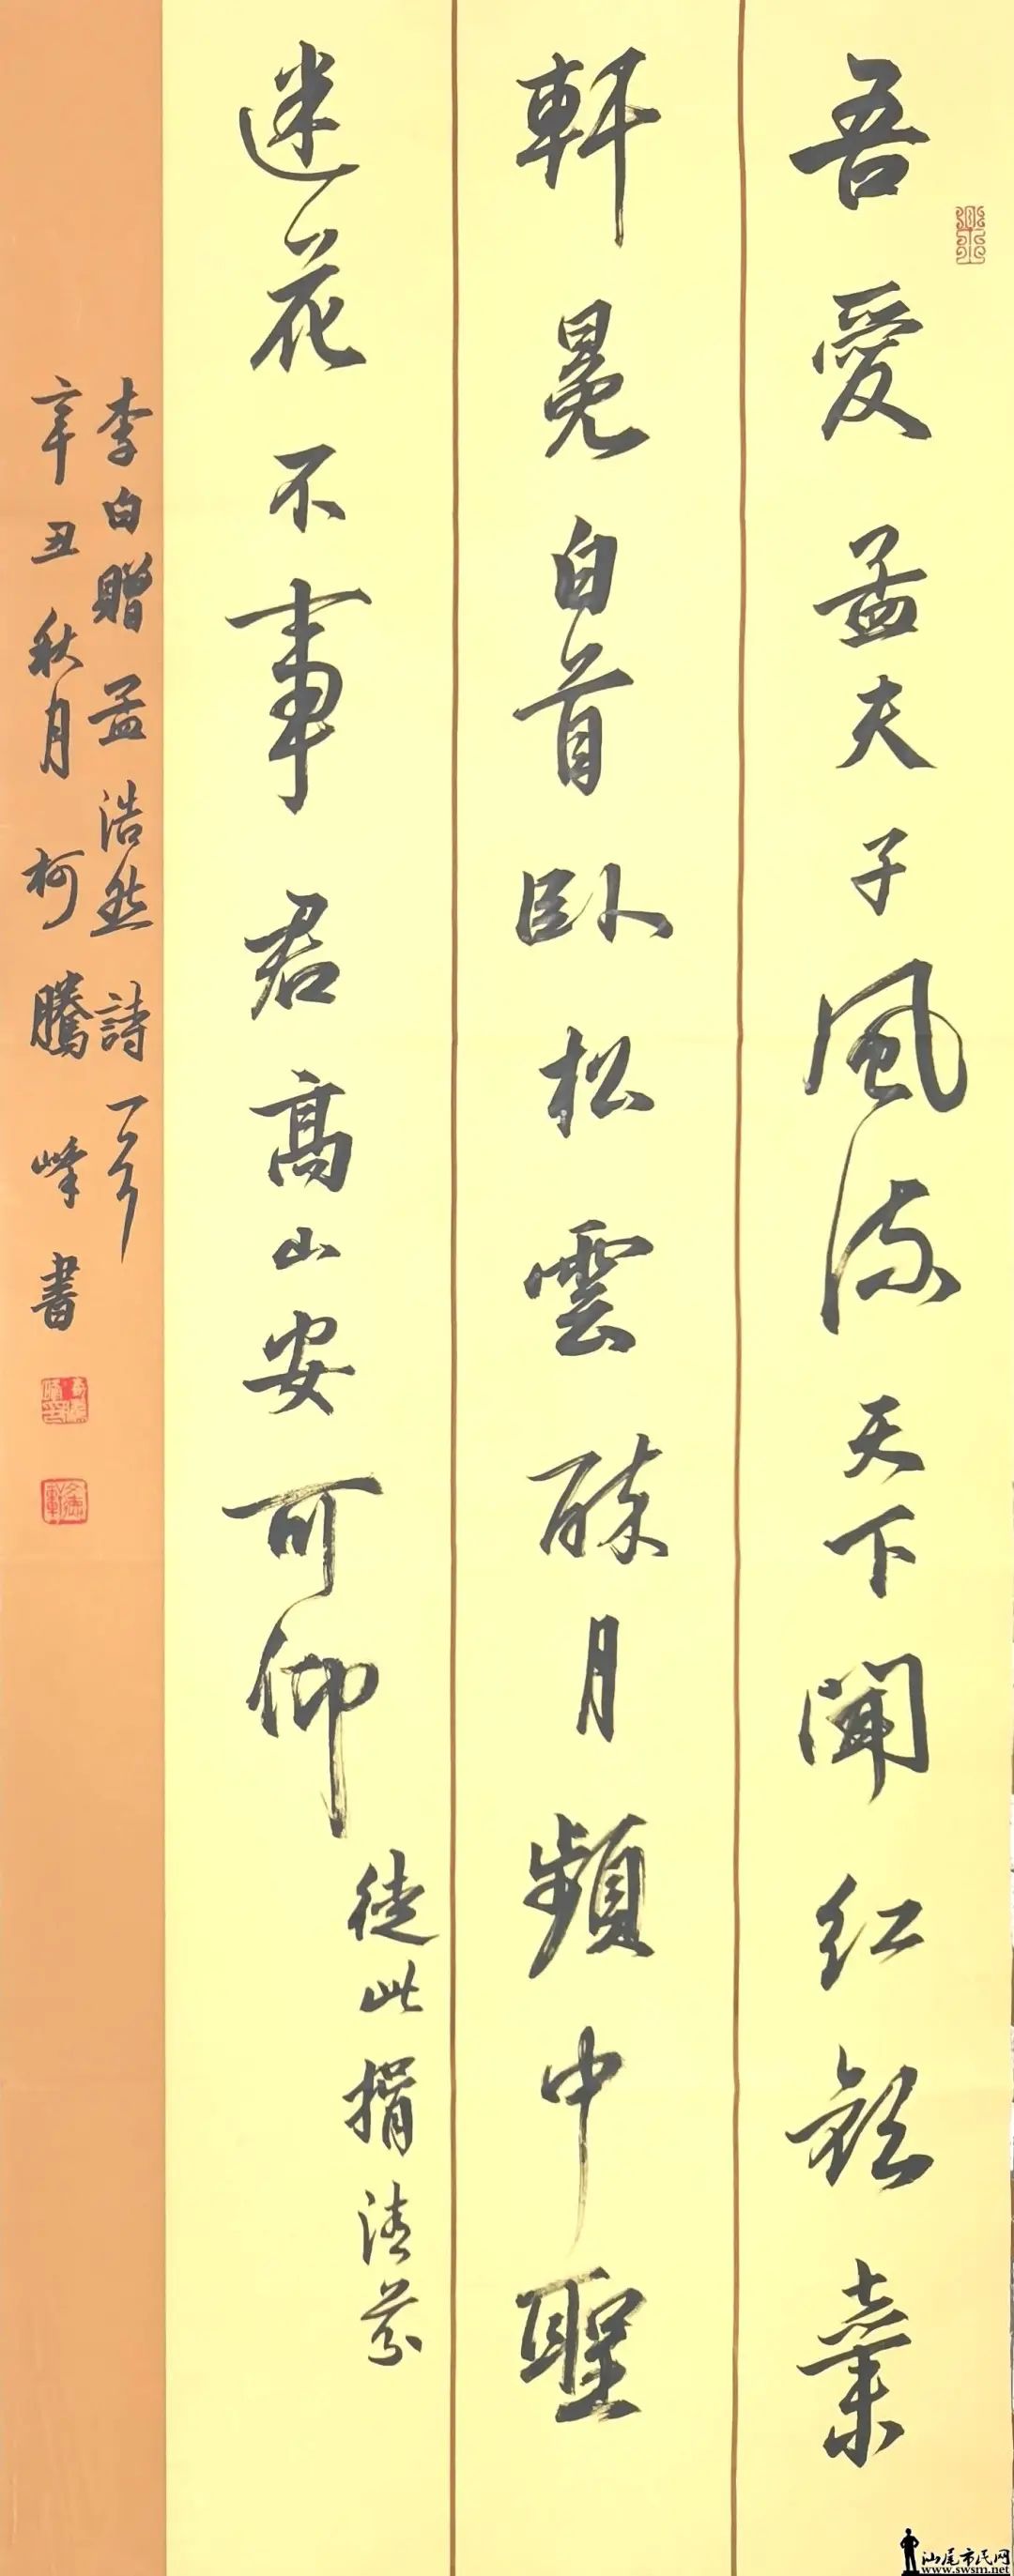 吾愛孟夫子風流天下聞红顏棄
軒冕白首臥松雲醉月頻中聖
迷花不事君高山安可仰
徒此揖清芬
李白贈孟浩然詩一首
辛丑秋月柯騰峰書
汕尾市民网
www.swsm.net